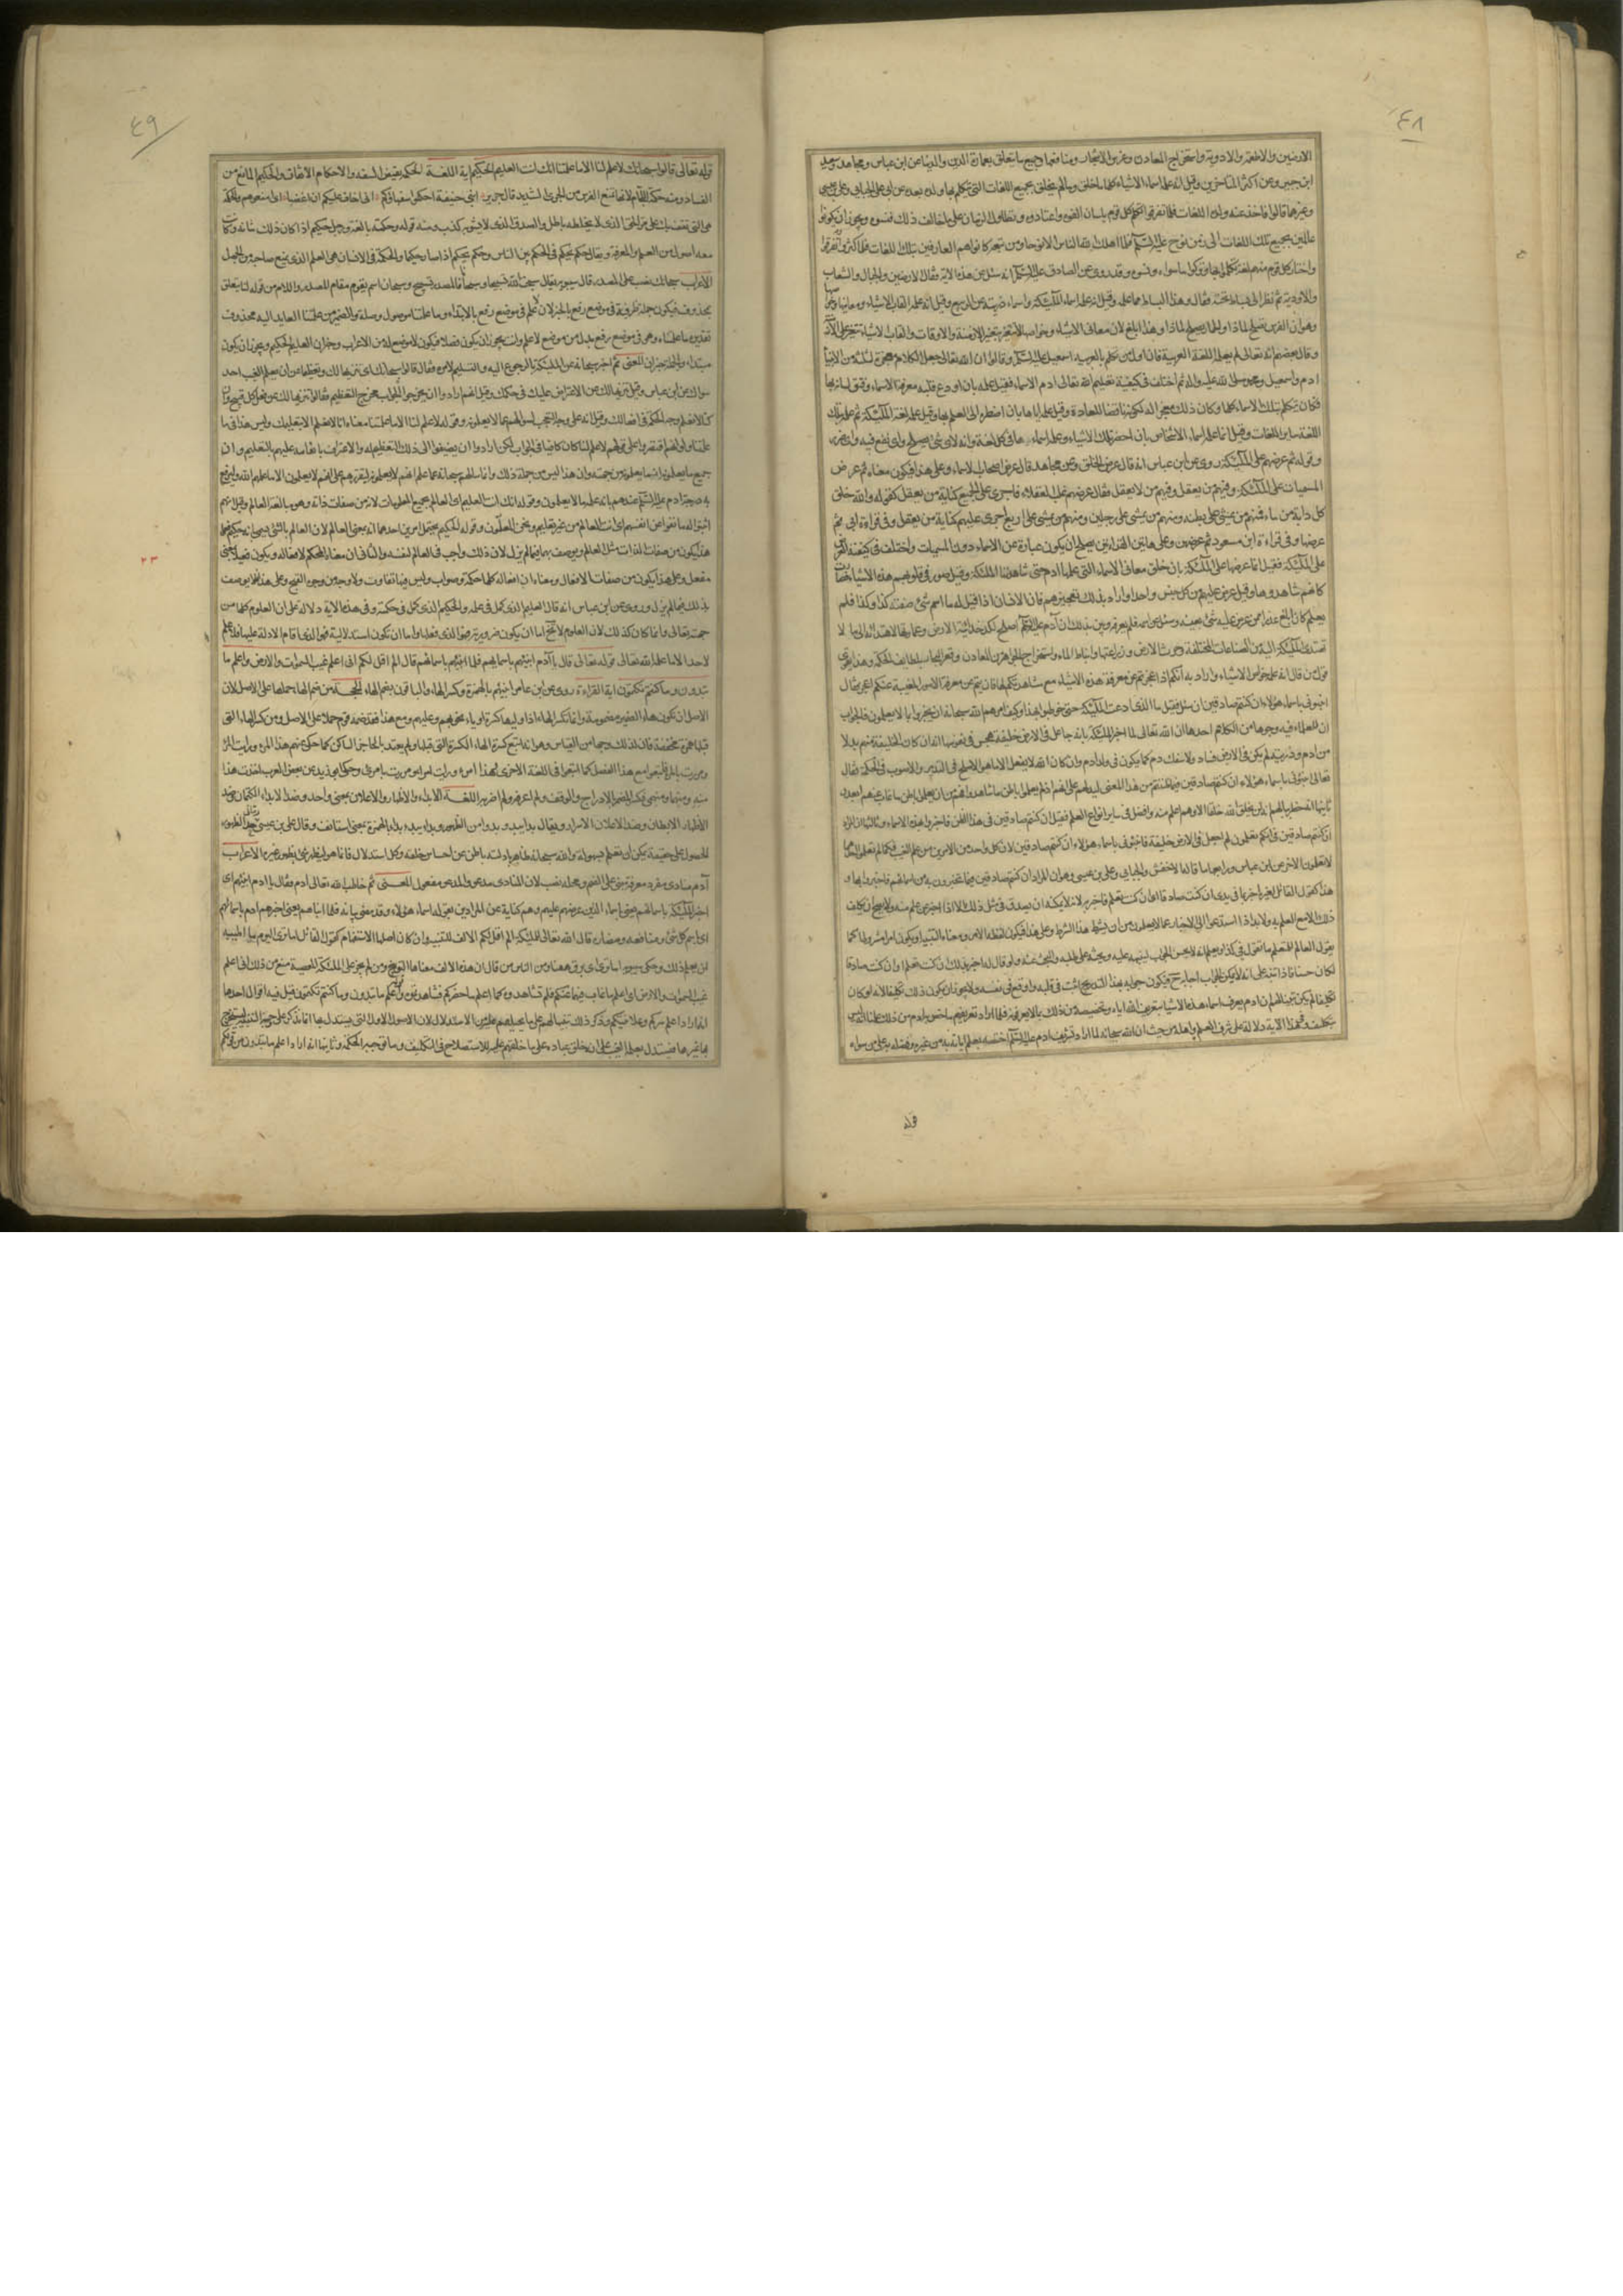 ٤٨
الارضين والاطعمة والادوية واستخراج المعادن وغرس الاشجار ومنافعها وجميع ما يتعلق بعمارة الدين والدنيا عن ابن عباس ومجاهد وسعيد
ابن جبير وعن اكثر المتاخرين وقيل انه علمه اسماء الاشياء كلها ما خلق وما لم يخلق بجميع اللغات التي يتكلم بها ولده بعده عن ابي علي الجبائي وعلي بن عيسى
وغيرهما قالوا فاخذ عنه ولده اللغات فلما تفرقوا تكلم كل قوم بلسان الفوه واعتادوه وتطاول الزمان على ما خالف ذلك فنسوه ويجوز ان يكونوا
عالمين بجميع تلك اللغات الى زمن نوح عليه السلام فلما اهلك الله الناس الا نوحا ومن تبعه كانوا هم العارفين بتلك اللغات فلما كثروا وتفرقوا
واختار كل قوم منهم لغة تكلموا بها وتركوا ما سواه ونسوه وقد روي عن الصادق عليه السلام انه سئل عن هذه الاية فقال الارضين والجبال والشعاب
والاودية ثم نظر الى بساط تحته فقال وهذا البساط مما علمه وقيل انه علمه اسماء الملئكة واسماء ذريته عن الربيع وقيل انه علمه القاب الاشياء ومعانيها وخواصها
وهو ان الفرس يصلح لماذا والحمار يصلح لماذا وهذا ابلغ لان معاني الاشياء وخواصها لا تتغير بتغير الازمنة والاوقات والقاب الاشياء تتغير على
وقال بعضهم انه تعالى لم يعلمه اللغة العربية فان اول من تكلم بالعربية اسمعيل عليه السلم وقالوا ان الله تعالى جعل الكلام معجزة لثلثة من الانبيا
ادم واسمعيل ومحمد صلى الله عليه واله ثم اختلف في كيفية تعليم الله تعالى ادم الاسماء فقيل علمه بان اودع قلبه معرفة الاسماء وفتق لسانه بها
فكان يتكلم بتلك الاسماء كلها وكان ذلك معجزة له لكونه ناقضا للعادة وقيل علمه اياها بان اضطره الى العلم بها وقيل علمه لغة الملئكة ثم علمه بتلك
اللغة ساير اللغات وقيل انما علمه اسماء الاشخاص بان احضر تلك الاشياء وعلمه اسماءها في كل لغة وانه لاي شئ يصلح واي نفع فيه واي ضرر
وقوله ثم عرضهم على الملئكة روي عن ابن عباس انه قال عرض الخلق وعن مجاهد قال عرض اصحاب الاسماء وعلى هذا فيكون معناه ثم عرض
المسميات على الملئكة وفيهم من يعقل وفيهم من لا يعقل فقال عرضهم غلب العقلاء فاجرى على الجميع كناية من يعقل كقوله والله خلق
كل دابة من ماء فمنهم من يمشي على بطنه ومنهم من يمشي على رجلين ومنهم من يمشي على اربع اجرى عليهم كناية من يعقل وفي قراءة ابي ثم
عرضها وفي قراءة ابن مسعود ثم عرضهن وعلى هاتين القراءتين يصلح ان يكون عبارة عن الاسماء دون المسميات واختلف في كيفية العرض
على الملئكة فقيل انما عرضها على الملئكة بان خلق معاني الاسماء التي علمها ادم حتى شاهدتها الملئكة وقيل صور في قلوبهم هذه الاشياء فصارت
كانهم شاهدوها وقيل عرض عليهم من كل جنس واحدا واراد بذلك تعجيزهم فان الانسان اذا قيل له ما اسم شئ صفته كذا وكذا فلم
يعلم كان ابلغ عذرا ممن عرض عليه شئ بعينه وسئل عن اسمه فلم يعرفه وبين بذلك ان آدم عليه السلم اصلح لكدخدائية الارض وعمارتها لاهتدائه الى ما لا
تهتدي الملئكة اليه من الصناعات المختلفة وحرث الارض وزراعتها وانباط الماء واستخراج الجواهر من المعادن وقعر البحار بلطايف الحكمة وهذا يقوي
قول من قال انه علمه خواص الاشياء واراد به انكم اذا عجزتم عن معرفة هذه الاشياء مع مشاهدتكم لها فانتم عن معرفة الامور المغيبة عنكم اعجز فقال
انبئوني باسماء هؤلاء ان كنتم صادقين ان سئل فقيل ما الذي ادعت الملئكة حتى خوطبوا بهذا وكيف امرهم الله سبحانه ان يخبروا بما لا يعلمون فالجواب
ان للعلماء فيه وجوها من الكلام احدها ان الله تعالى لما اخبر الملئكة بانه جاعل في الارض خليفة هجس في نفوسها انه ان كان الخليفة منهم بدلا
من ادم وذريته لم يكن في الارض فساد ولا سفك دم كما يكون في ولد ادم وان كان الله لا يفعل الا ما هو الاصلح في التدبير والاصوب في الحكمة فقال
تعالى انبئوني باسماء هؤلاء ان كنتم صادقين فيما ظننتم من هذا المعنى ليدلهم على انهم اذا لم يعلموا باطن ما شاهدوا فهم من ان يعلموا باطن ما غاب عنهم ابعد
ثانيها انه خطر ببالهم انه لن يخلق الله خلقا الا وهم اعلم منه وافضل في ساير انواع العلم فقيل ان كنتم صادقين في هذا الظن فاخبروا بهذه الاسماء وثالثها ان المراد
ان كنتم صادقين في انكم تعلمون لم اجعل في الارض خليفة فانبئوني باسماء هؤلاء ان كنتم صادقين لان كل واحد من الامرين من علم الغيب فكما لم تعلموا
لا تعلمون الاخر عن ابن عباس ورابعها ما قاله الاخفش والجبائي وعلي بن عيسى وهو ان المراد ان كنتم صادقين فيما تخبرون به من اسمائهم فاخبروا بها و
هذا كقول القائل لغيره اخبرنا في يدي ان كنت صادقا اي ان كنت تعلم فاخبر به لانه لا يمكنه ان يصدق في مثل ذلك الا اذا اخبر عن علم منه ولا يصح ان يكلف
ذلك الا مع العلم به ولا بد اذا استدعوا الى الاخبار عما لا يعلمون من ان يشترط هذا الشرط وعلى هذا فيكون لفظه الامر ومعناه التنبيه او يكون امرا مشروطا كما
يقول العالم للمتعلم ما تقول في كذا ويعلم انه لا يحسن الجواب لينبهه عليه ويحثه على طلبه والبحث عنه ولو قال له اخبر بذلك ان كنت تعلم او ان كنت صادقا
لكان حسنا فاذا تنبه على انه لا يمكن الجواب اجابه ح فيكون جوابه بهذا التدريج اثبت في قلبه واوقع في نفسه ولا يجوز ان يكون ذلك تكليفا لانه لو كان
تكليفا لم يكن تبيينا لهم ان ادم يعرف اسماء هذه الاشياء بتعريف الله اياه وتخصيصه من ذلك بما لا يعرفونه فلما اراد تعريفهم ما خص به ادم من ذلك علمنا انه ليس
بتكليف وفي هذه الاية دلالة على شرف العلم واهله من حيث ان الله سبحانه لما اراد تشريف ادم عليه السلم اختصه بعلم ابانه به من غيره وفضله به على من سواه
قوله
٤٩
قوله تعالى قالوا سبحانك لا علم لنا الا ما علمتنا انك انت العليم الحكيم اية اللغة الحكمة نقيض السفه والاحكام الاتقان والحكيم المانع من
الفساد ومنه حكمة اللجام لانها تمنع الفرس من الجري الشديد قال جرير ابني حنيفة احكموا سفهاءكم اني اخاف عليكم ان اغضبا اي امنعوهم والحكمة
هي التي تقف بك على مر الحق الذي لا يخلطه باطل والصدق الذي لا يشوبه كذب ومنه قوله وحكمة بالغة ورجل حكيم اذا كان ذلك شانه وكانت
معه اصول من العلم والمعرفة ويقال حكم يحكم في الحكم بين الناس وحكم يحكم اذا صار حكيما والحكمة في الانسان هي العلم الذي يمنع صاحبه من الجهل
الاعراب سبحانك نصب على المصدر قال سيبويه يقال سبحت الله تسبيحا وسبحانا فالمصدر تسبيح وسبحان اسم يقوم مقام المصدر واللام من قوله لنا يتعلق
بمحذوف فيكون جملة ظرفية في موضع رفع بالخبر لان لا علم في موضع رفع بالابتداء وما علمتنا موصول وصلة والضمير من علمتنا العايد اليه محذوف
تقديره ما علمتناه وهو في موضع رفع بدل من موضع لا علم وانت يجوز ان يكون فصلا فيكون لا موضع له من الاعراب وخبر ان العليم الحكيم ويجوز ان يكون
مبتداء والجملة خبر ان المعنى ثم اخبر سبحانه عن الملئكة بالرجوع اليه والتسليم لامره فقال قالوا سبحانك اي تنزيها لك وتعظيما عن ان يعلم الغيب احد
سواك عن ابن عباس وقيل تنزيها لك من الاعتراض عليك في حكمك وقيل انهم ارادوا ان يخرجوا الجواب مخرج التعظيم فقالوا تنزيها لك عن فعل كل قبيح وان
كنا لا نعلم وجه الحكمة في افعالك وقيل انه على وجه التعجب لسؤالهم عما لا يعلمونه وقوله لا علم لنا الا ما علمتنا معناه انا لا نعلم الا بتعليمك وليس هذا في ما
علمتنا ولو انهم اقتصروا على قولهم لا علم لنا لكان كافيا في الجواب لكن ارادوا ان يضيفوا الى ذلك التعظيم له والاعتراف بانعامه عليهم بالتعليم وان
جميع ما يعلمونه انما يعلمونه من جهته وان هذا ليس من جملة ذلك وانما سالهم سبحانه عما علم انهم لا يعلمونه ليقررهم على انهم لا يعلمون الا ما علمهم الله وليرفع
به درجة ادم عليه السلم عندهم بانه علمه ما لا يعلمون وقوله انك انت العليم اي العالم بجميع المعلومات لانه من صفات ذاته وهو مبالغة العالم وقيل انهم
اثبتوا له ما نفوه عن انفسهم اي انت العالم من غير تعليم ونحن المعلمون وقوله الحكيم يحتمل امرين احدهما انه بمعنى العالم لان العالم بالشئ يسمى انه حكيم فعلى
هذا يكون من صفات الذات مثل العالم ويوصف بهما فيما لم يزل لان ذلك واجب في العالم لنفسه والثاني ان معناه المحكم لافعاله ويكون فعيلا بمعنى
مفعل وعلى هذا يكون من صفات الافعال ومعناه ان افعاله كلها حكمة وصواب وليس فيها تفاوت ولا وجه من وجوه القبح وعلى هذا فلا يوصف
بذلك فيما لم يزل وروي عن ابن عباس انه قال العليم الذي كمل في علمه والحكيم الذي كمل في حكمته وفي هذه الاية دلالة على ان العلوم كلها من
جهته تعالى وانما كان كذلك لان العلوم لا تخلو اما ان يكون ضرورية فهو الذي فعلها واما ان تكون استدلالية فهو الذي اقام الادلة عليها فلا علم
لاحد الا ما علمه الله تعالى قوله تعالى قال يا آدم انبئهم باسمايهم فلما انبئهم باسمائهم قال الم اقل لكم اني اعلم غيب السموات والارض واعلم ما
تبدون وما كنتم تكتمون اية القراءة روي عن ابن عامر انبئهم بالهمزة وكسر الهاء والباقون بضم الهاء الحجة من ضم الهاء حملها على الاصل لان
الاصل ان تكون هاء الضمير مضمومة وانما تكسر الهاء اذا وليها كسرة او ياء نحو بهم وعليهم ومع هذا فقد ضمه قوم حملا على الاصل ومن كسر الهاء التي
قبلها همزة مخففة فان لذلك وجها من القياس وهو انه اتبع كسرة الهاء الكسرة التي قبلها ولم يعتد بالحاجز الساكن كما حكي عنهم هذا المرء ورايت المرء
ومررت بالمرء فاتبعوا مع هذا الفصل كما اتبعوا في اللغة الاخرى نحو هذا امرء ورايت امراء ومررت بامرئ وحكى ابو زيد عن بعض العرب اخذت هذا
منه ومنهما ومنهمي فكسر المضمر في الادراج والوقف ولم اعرفه ولم اضربه اللغة الابداء والاظهار والاعلان بمعنى واحد وضد الابداء الكتمان وضد
الاظهار الابطان وضد الاعلان الاسرار ويقال بدا يبدو بدوا من الظهور وبدا يبدء بداء بالهمزة بمعنى استانف وقال علي بن عيسى الظهور
الحصول على حقيقة يمكن ان تعلم بسهولة والله سبحانه ظاهر بادلته باطن عن احساس خلقه وكل استدلال فانما هو ليظهر شئ بظهور غيره الاعراب
آدم منادى مفرد معرفة مبني على الضم ومحله نصب لان المنادى مدعو والمدعو مفعول المعنى ثم خاطب الله تعالى ادم فقال يا ادم انبئهم اي
اخبر الملئكة باسمائهم يعني باسماء الذين عرضهم عليهم وهم كناية عن المرادين بقوله اسماء هؤلاء وقد مضى بيانه فلما انباهم يعني اخبرهم ادم باسمائهم
اي باسم كل شئ ومنافعه ومضاره قال الله تعالى للملئكة الم اقل لكم الالف للتنبيه وان كان اصلها الاستفهام كقول القائل اما ترى اليوم ما اطيبه
لمن يعلم ذلك وحكى سيبويه اما ترى اي برق ههنا ومن الناس من قال ان هذه الالف معناها التوبيخ ومن لم يجز على الملئكة المعصية منع من ذلك اني اعلم
غيب السموات والارض اي اعلم ما غاب فيهما عنكم فلم تشاهدوه كما اعلم ما حضركم فشاهدتموه واعلم ما تبدون وما كنتم تكتمون قيل فيه اقوال احدها
انه اراد اعلم سركم وعلانيتكم وذكر ذلك تنبيها لهم على ما يحيلهم عليه من الاستدلال لان الاصول الاول التي يستدل بها انما تذكر على وجه التنبيه ليستخرج
بها غيرها فيستدل بعلم الغيب على انه خلق عباده على ما خلقهم عليه للاستصلاح في التكليف وما توجبه الحكمة وثانيها انه اراد اعلم ما تبدون من قولكم
٢٣